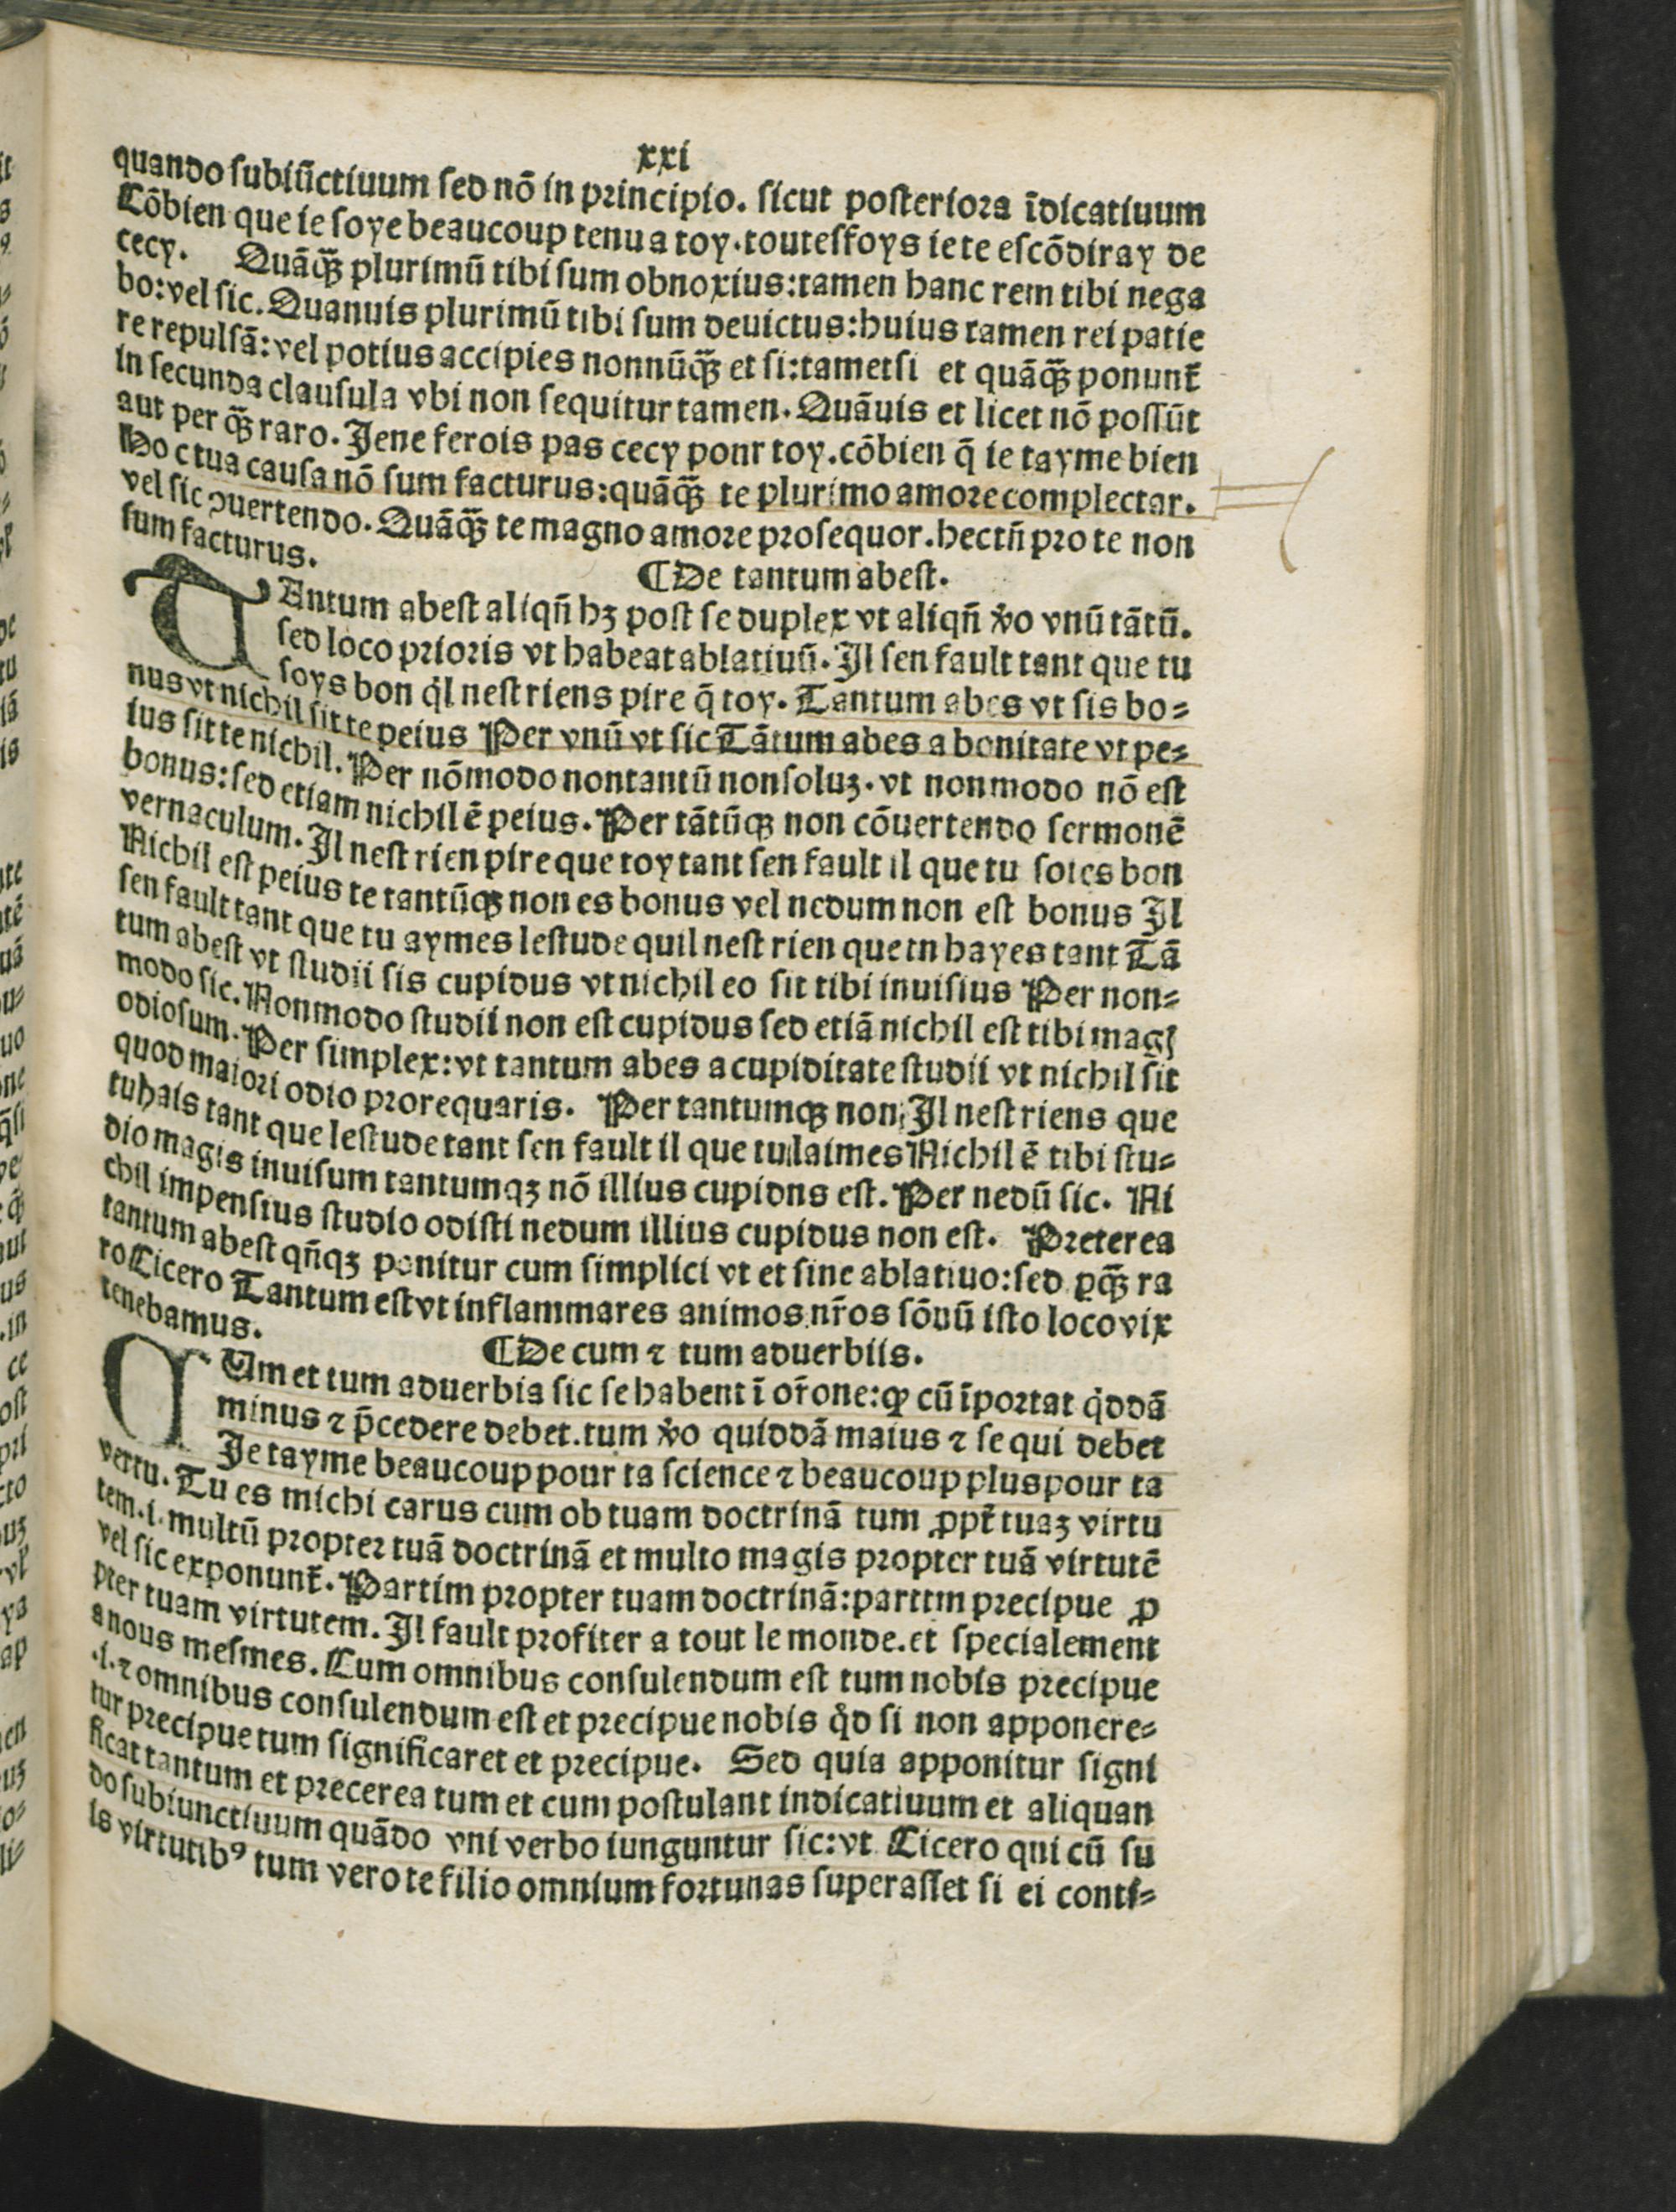 xxi
quando ſubiūctiuum ſed nō in principio. ſicut poſteriora īdicatiuum
Cōbien que ie ſoye beaucoup tenu a toy. touteſfoys ie te eſcōdiray de
cecy. Quāqꝫ plurimū tibi ſum obnoxius: tamen hanc rem tibi nega
bo: vel ſic. Quanuis plurimū tibi ſum deuictus: huius tamen rei patie
re repulſā: vel potius accipies nonnūqꝫ et ſi: tametſi et quāqꝫ ponunt̄
in ſecunda clauſula vbi non ſequitur tamen. Quāuis et licet nō poſſūt
aut per qꝫ raro. Je ne ferois pas cecy ponr toy. cōbien q̄ ie tayme bien
Hoc tua cauſa nō ſum facturus: quāqꝫ te plurimo amore complectar.
vel ſic ꝯuertendo. Quāqꝫ te magno amore proſequor. hec tn̄ pro te non
ſum facturus.
¶De tantum abeſt.
TAntum abeſt aliqn̄ hꝫ poſt ſe duplex vt aliqn̄ v̊o vnū tātū.
ſed loco prioris vt habeat ablatiuū. Il ſen fault tant que tu
ſoys bon q̇l neſt riens pire q̄ toy. Tantum abes vt ſis bo⸗
nus vt nichil ſit te peius Per vnū vt ſic Tātum abes a bonitate vt pe⸗
ius ſit te nichil. Per nōmodo nontantū nonſoluꝫ. vt nonmodo nō eſt
bonus: ſed etiam nichil ē peius. Per tātūqꝫ non cōuertendo ſermonē
vernaculum. Il neſt rien pire que toy tant ſen fault il que tu ſoies bon
Nichil eſt peius te tantūqꝫ non es bonus vel nedum non eſt bonus Il
ſen fault tant que tu aymes leſtude quil neſt rien que tn hayes tant Tā
tum abeſt vt ſtudii ſis cupidus vt nichil eo ſit tibi inuiſius Per non⸗
modo ſic. Nonmodo ſtudii non eſt cupidus ſed etiā nichil eſt tibi magꝭ
odioſum. Per ſimplex: vt tantum abes a cupiditate ſtudii vt nichil ſit
quod maiori odio prorequaris. Per tantumqꝫ non, Il neſt riens que
tu hais tant que leſtude tant ſen fault il que tu laimes Nichil ē tibi ſtu⸗
dio magis inuiſum tantumqꝫ nō illius cupidns eſt. Per nedū ſic. Ni
chil impenſius ſtudio odiſti nedum illius cupidus non eſt. Preterea
tantum abeſt qn̄qꝫ ponitur cum ſimplici vt et ſine ablatiuo: ſed ꝑqꝫ ra
ro Cicero Tantum eſt vt inflammares animos nr̄os ſōnū iſto loco vix
tenebamus.
¶De cum ⁊ tum aduerbiis.
CUm et tum aduerbia ſic ſe habent ī or̄one: ꝙ cū īportat q̇ddā
minus ⁊ p̄cedere debet. tum v̊o quiddā maius ⁊ ſequi debet
Je tayme beaucoup pour ta ſcience ⁊ beaucoup plus pour ta
vertu. Tu es michi carus cum ob tuam doctrinā tum ꝓpt̄ tuaꝫ virtu
tem. i. multū propter tuā doctrinā et multo magis propter tuā virtutē
vel ſic exponunt̄. Partim propter tuam doctrinā: partim precipue ꝓ
pter tuam virtutem. Il fault profiter a tout le monde. et ſpecialement
a nous meſmes. Cum omnibus conſulendum eſt tum nobis precipue
.i. ⁊ omnibus conſulendum eſt et precipue nobis q̇d ſi non apponere⸗
tur precipue tum ſignificaret et precipue. Sed quia apponitur ſigni
ficat tantum et precerea tum et cum poſtulant indicatiuum et aliquan
do ſubiunctiuum quādo vni verbo iunguntur ſic: vt Cicero qui cū ſu
is virtutibꝰ tum vero te filio omnium fortunas ſuperaſſet ſi ei conti⸗